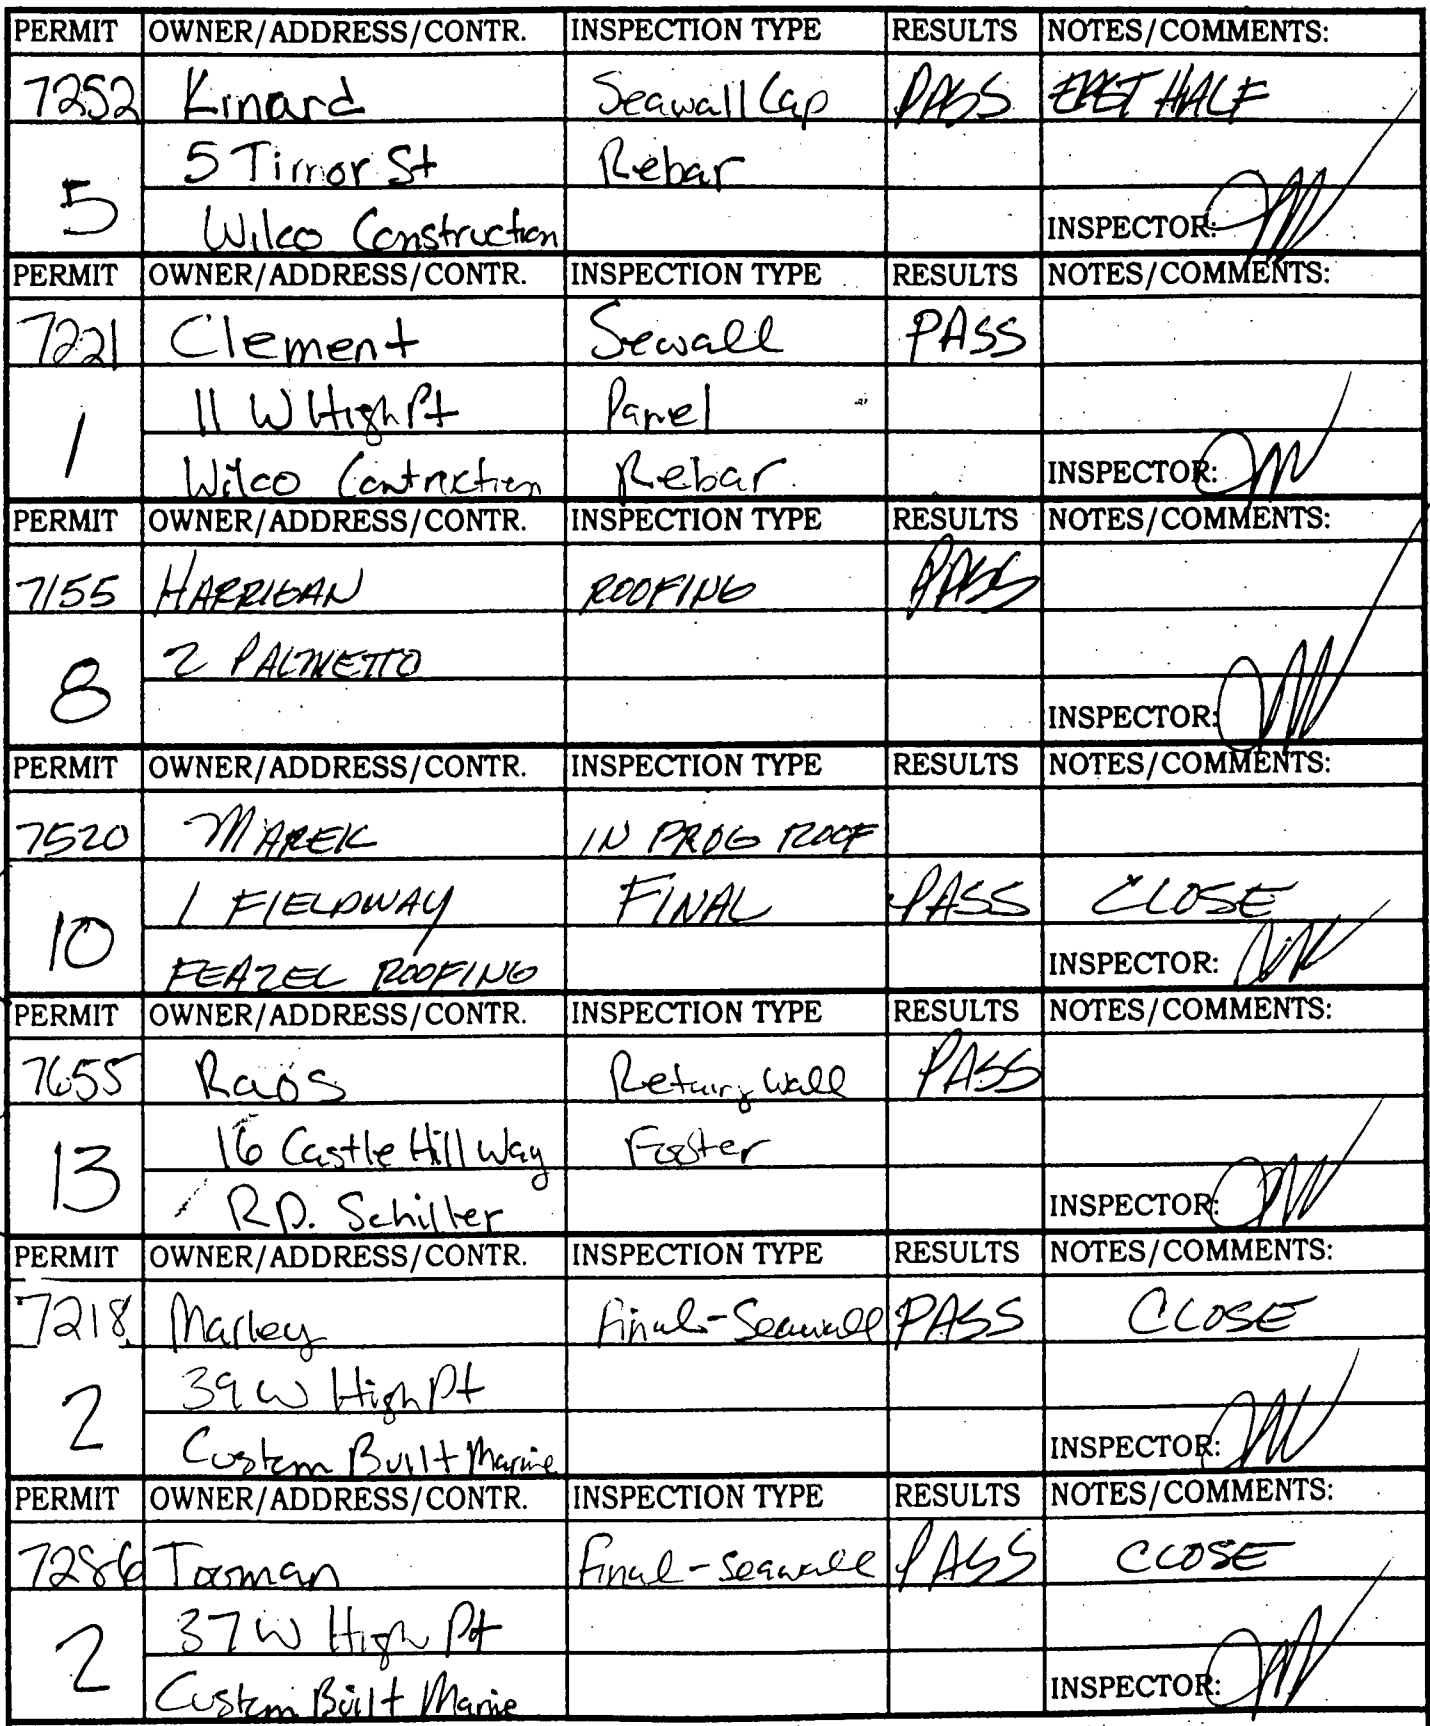 PERMIT OWNER/ADDRESS/CONTR. INSPECTION TYPE RESULTS NOTES/COMMENTS:
7252 Kinard Seawall Cap PASS EAST HALF
5 Timor St Rebar
5
Wilco Construction INSPECTOR:
PERMIT OWNER/ADDRESS/CONTR. INSPECTION TYPE RESULTS NOTES/COMMENTS:
7221 Clement Sewall PASS
11 W High Pt Panel
1
Wilco Rebar INSPECTOR:
PERMIT OWNER/ADDRESS/CONTR. INSPECTION TYPE RESULTS NOTES/COMMENTS:
7155 HARRIGAN ROOFING PASS
2 PALMETTO
8
INSPECTOR:
PERMIT OWNER/ADDRESS/CONTR. INSPECTION TYPE RESULTS NOTES/COMMENTS:
7520 MAREK IN PROG ROOF
1 FIELDWAY FINAL PASS CLOSE
10
FEAZEL ROOFING INSPECTOR:
PERMIT OWNER/ADDRESS/CONTR. INSPECTION TYPE RESULTS NOTES/COMMENTS:
7655 Raos Wall PASS
16 Castle Hill Way Footer
13
R.D. Schiller INSPECTOR:
PERMIT OWNER/ADDRESS/CONTR. INSPECTION TYPE RESULTS NOTES/COMMENTS:
7218 Marley Final-Seawall PASS CLOSE
39 W High Pt
2
Custom Built Marine INSPECTOR:
PERMIT OWNER/ADDRESS/CONTR. INSPECTION TYPE RESULTS NOTES/COMMENTS:
7286 Tooman Final-seawall PASS CLOSE
37 W High Pt
2
Custom Built Marine INSPECTOR: